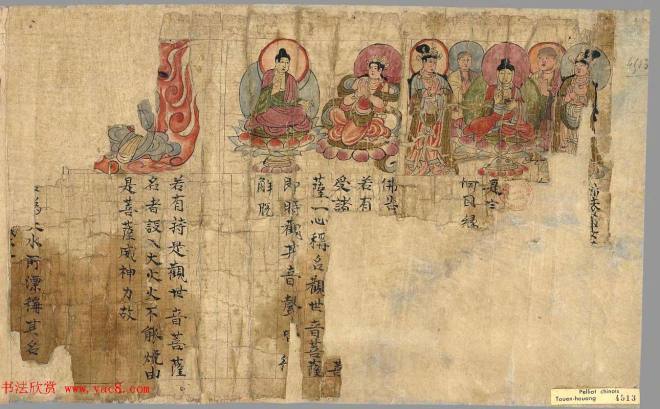 4513
是言
何因緣
佛告
若有
受諸
薩一心稱名觀世音菩薩
即時觀其音聲
解脫
若有持是觀世音菩薩
名者設入大火火不能燒由
是菩薩威神力故
大水所漂稱其名
书法欣赏 www.yac8.com
Pelliot chinois
Touen-houang 4513